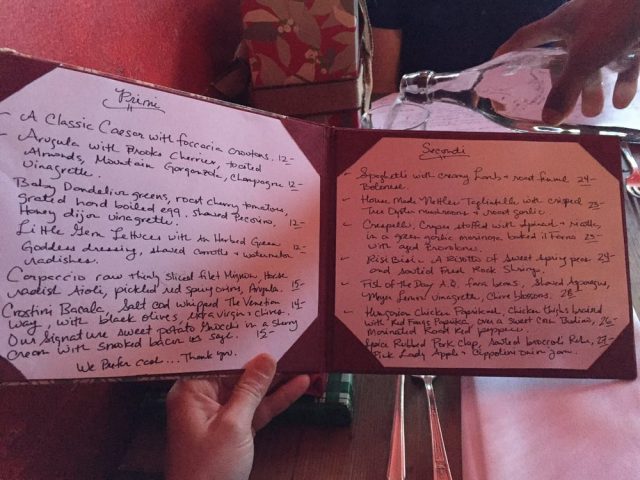 Primi
A Classic Caesar with foccaria croutons. 12-
Arugula with Brooks Cherries, toasted
Almonds, Mountain Gorgonzola, Champagne 12-
Vinagrette.
Baby Dandelive greens, roast cherry tomatoes,
grated hard boiled egg, shaved Pecorino, 12-
Honey dijon vinagrette.
Little Gem Lettuces with an Herbed Green
Goddess dressing, shaved carrots + watermelon 12-
radishes.
Carpaccio raw thinly sliced filet Mignon, Horse
radish Aioli, pickled red spring onions, Arugula. 15-
Crostini Bacala, Salt cod whipped The Venetian
Way, with black olives, extra virgin + chives. 14-
Our signature sweet potato Gnocchi in a sherry
cream with smoked bacon + sage. 15-
We Prefer Cash... Thank you.
Secondi
Spaghetti with creamy Lamb + roast fennel 24-
Bolonese.
House Made Nettles Tagliatelle with crisped 23-
Tree Oyster mushrooms + roast garlic.
Crespelli, Crepes stuffed with Spinach + ricotta,
in a green garlic marinara, baked it Forno 23-
with aged
Risi Bisi - A Risotto of Sweet Spring peas 24-
and sautéed Fresh Rock Shrimp.
Fish of the Day A.Q. fava beans, Shaved Asparagus,
Meyer Lemon Vinagrette, Chive blossoms. 28-
Hungarian Chicken Paprikash, Chicken Thighs braised
with Red Paprika, over a sweet Corn 26-
Marinated Roast Red peppers
Spice Rubbed Pork Chop, sautéed broccoli Rabe, 27-
Pink Lady Apple + Cippolini onion jam.